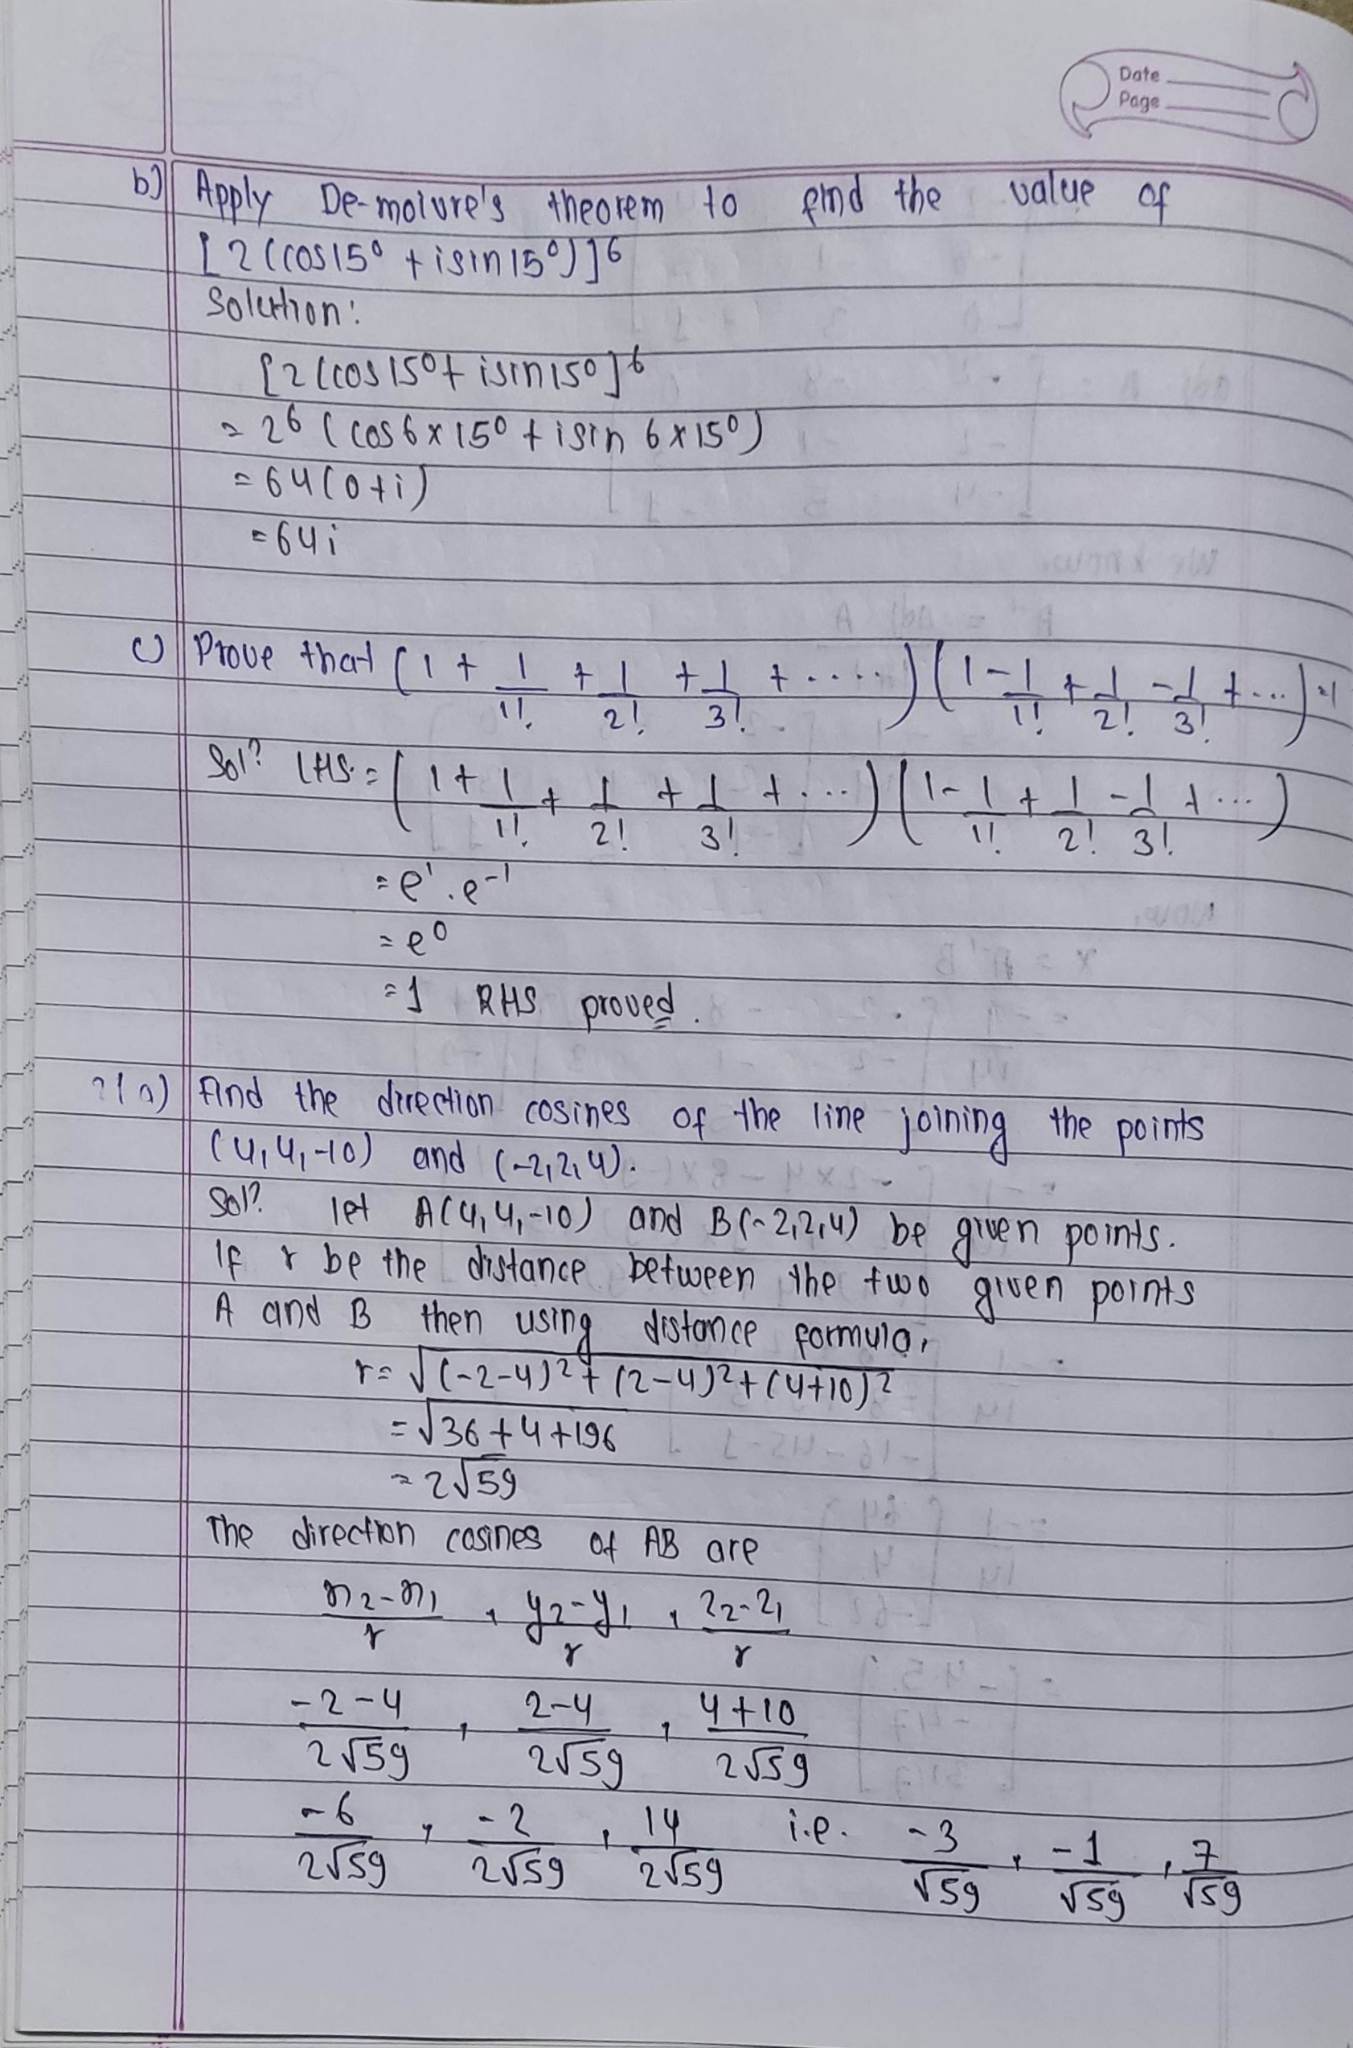 Date
Page
b) Apply De-moivre's theorem to find the value of
[2(cos15° + isin15°)]6
Solution:
[2(cos15°+ isin15°]6
= 26 (cos6x15° + isin 6x15°)
= 64(0+i)
= 64i
c) Prove that (1 + 1/1! + 1/2! + 1/3! + ....) (1 - 1/1! + 1/2! - 1/3! + ...) = 1
Soln LHS = (1 + 1/1! + 1/2! + 1/3! + ...) (1 - 1/1! + 1/2! - 1/3! + ...)
= e1.e-1
= e0
= 1 RHS proved.
2(a) Find the direction cosines of the line joining the points
(4,4,-10) and (-2,2,4).
Soln let A(4,4,-10) and B(-2,2,4) be given points.
If r be the distance between the two given points
A and B then using distance formula,
r = √(-2-4)2 + (2-4)2 + (4+10)2
= √36+4+196
= 2√59
The direction cosines of AB are
x2-x1/r , y2-y1/r , z2-z1/r
-2-4/2√59 , 2-4/2√59 , 4+10/2√59
-6/2√59 , -2/2√59 , 14/2√59 i.e. -3/√59 , -1/√59 , 7/√59